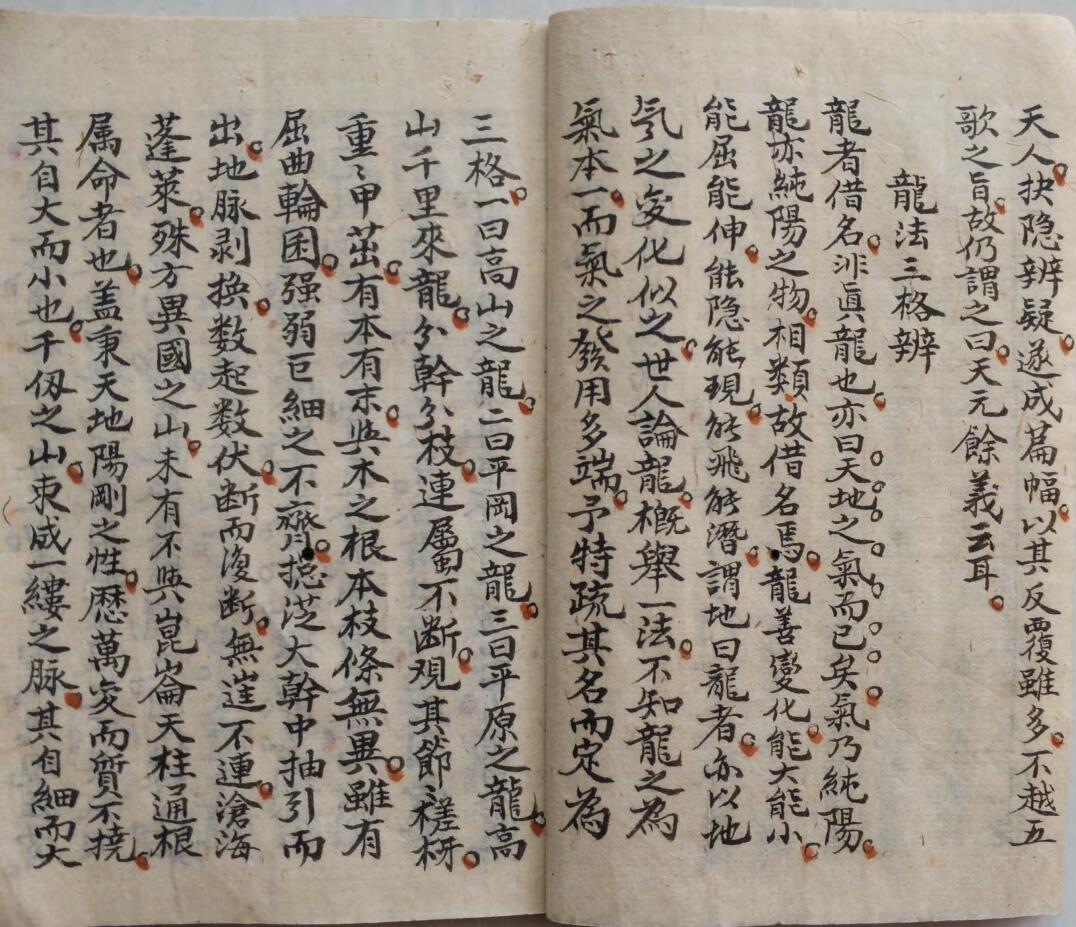 天人抉隐辨疑遂成篇幅以其反覆雖多不越五
歌之旨故仍謂之曰天元餘義云耳
龍法三格辨
龍者借名非眞龍也亦曰天地之氣而已矣氣乃純陽
龍亦純陽之物相類故借名焉龍善變化能大能小
能屈能伸能隐能現能飛能潛謂地曰龍者亦以地
氣之变化似之世人論龍概舉一法不知龍之為
氣本一而氣之發用多端予特疏其名而定為
三格一曰高山之龍二曰平岡之龍三曰平原之龍高
山千里來龍分幹分枝連屬不断观其節〻槎枒
重〻甲茁有本有末與木之根本枝條無異雖有
屈曲輪囷强弱巨細之不齊揔從大幹中抽引而
出地脉剥换数起数伏断而復断無遠不連滄海
蓬萊殊方異國之山未有不與崑崙天柱通根
属命者也盖秉天地陽剛之性歷萬变而質不撓
其自大而小也千仭之山束成一縷之脉其自細而大